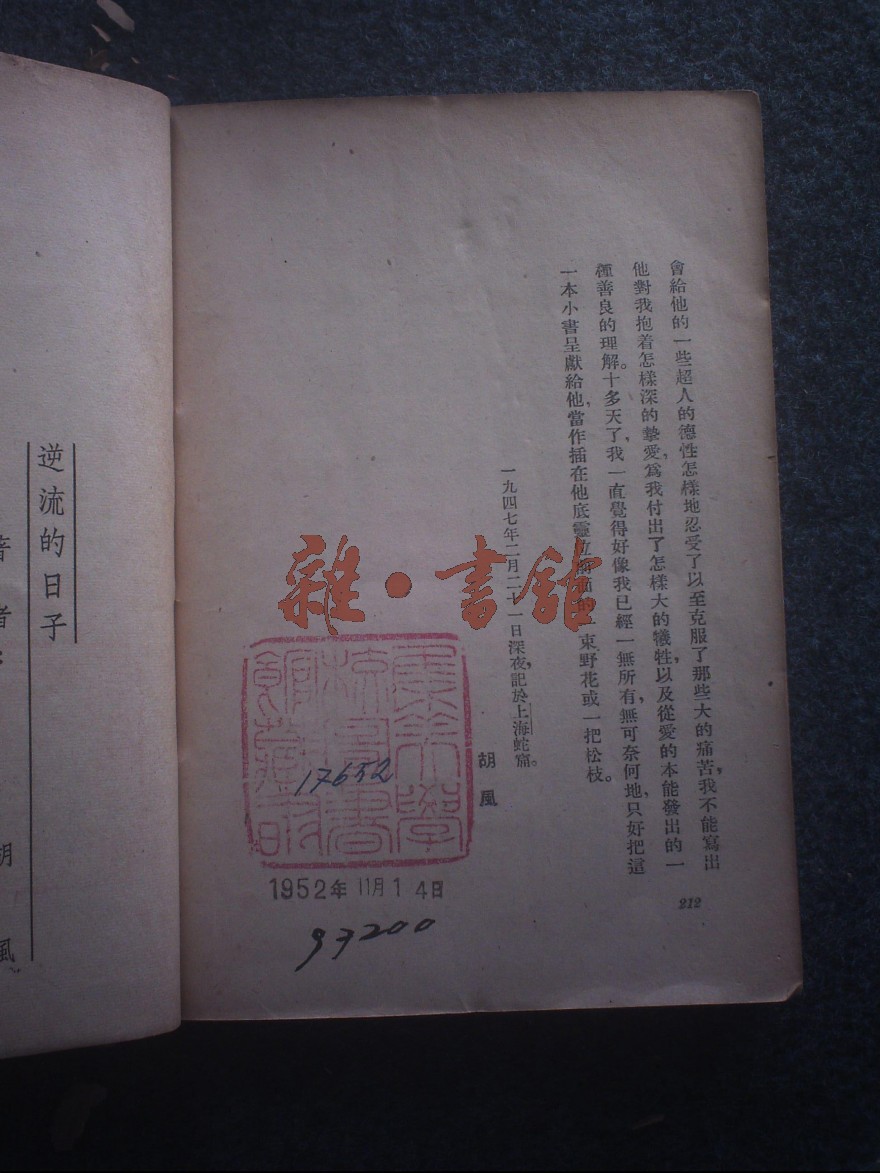 會給他的一些超人的德性怎樣地忍受了以至克服了那些大的痛苦，我不能寫出
他對我抱着怎樣深的摯愛，爲我付出了怎樣大的犧牲，以及從愛的本能發出的一
種善良的理解。十多天了，我一直覺得好像我已經一無所有，無可奈何地，只好把這
一本小書呈獻給他，當作插在他底靈位前面的一束野花或一把松枝。
一九四七年二月二十一日深夜，記於上海蛇窟。
胡風
212
雜·書舘
17652
1952年11月14日
97200
逆流的日子
著者：胡風